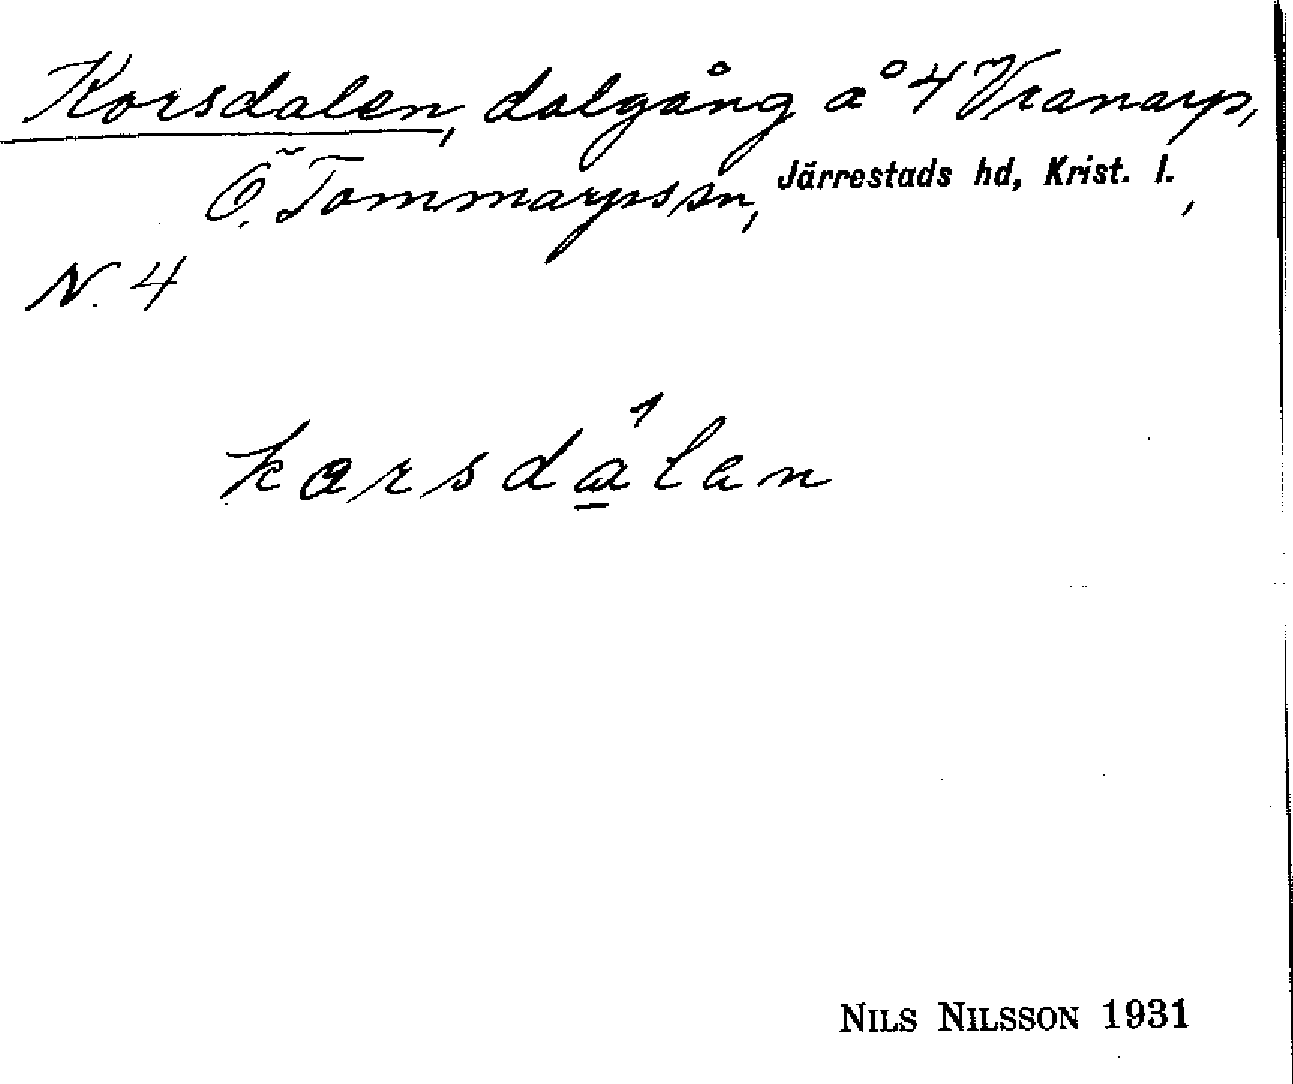 Korsdalen, dalgång å 4 Vranarp,
Ö. Tommarps sn, Järrestads hd, Krist. l.,
N. 4
karsdálen
NILS NILSSON 1931